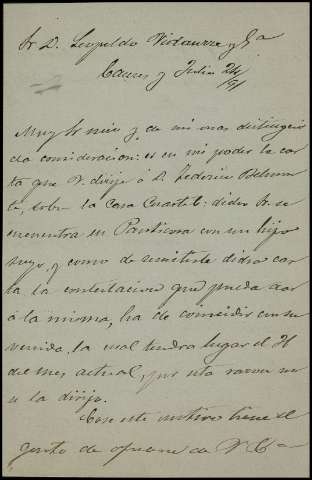 Sr. D. Leopoldo y Ca
Caceres y Julio 24/91
Muy Sr. mio y de mi mas distingui
da consideracion: es en mi poder la car
ta que V. dirije á D. Federico
sobre la Casa Cuartel: dicho Sr. se
encuentra en Panticosa con un hijo
suyo, y como de remitirle dicha car
ta la contestacion que pueda dar
á la misma, ha de coincidir con su
venida, la cual tendra lugar el 31
del mes actual, por esta razon no
se la dirijo.
Con este motivo tiene el
gusto de ofrecerse de V.